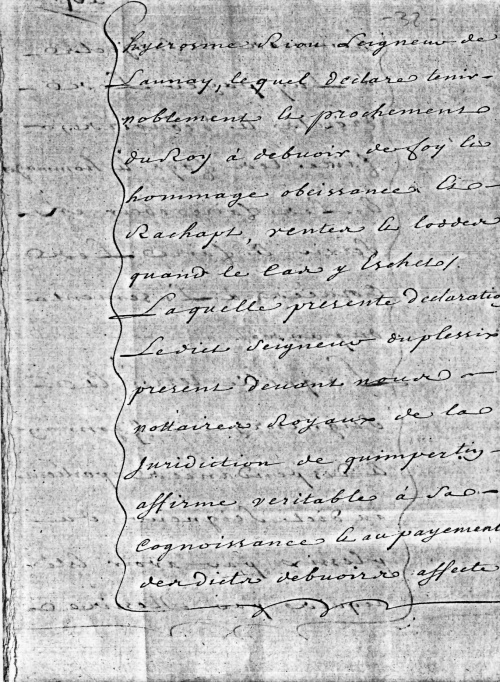 -32-
hyerosme Riou Seigneur de
Launay, lequel declare tenir
noblement & prochement
du Roy à debuoir de foy &
hommage obeissance &
Rachapt, ventes & lodes
quand le Cas y Eschet /.
Laquelle presente declaratio
Ledict Seigneur du plessix
present deuant nous
nottaires Royaux de la
Juridiction de quimperlay
affirme veritable à sa
Cognoissance & au payement
des dicts debuoirs affecte